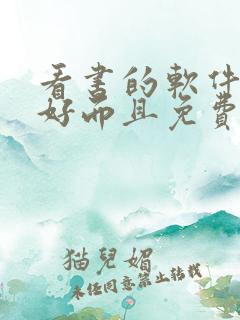 看书的軟件
好而且免費
猫兒媚
未经同意禁止转载